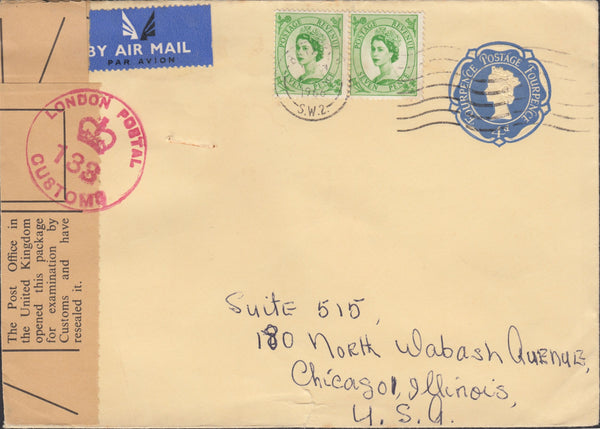 BY AIR MAIL
PAR AVION
POSTAGE REVENUE
SEVEN PENCE
POSTAGE REVENUE
SEVEN PENCE
S.W.2.
FOURPENCE POSTAGE FOURPENCE
4d
LONDON POSTAL
133
CUSTOMS
The Post Office in
the United Kingdom
opened this package
for examination by
Customs and have
resealed it.
Suite 515,
180 North Wabash Avenue,
Chicago, Illinois,
U.S.A.